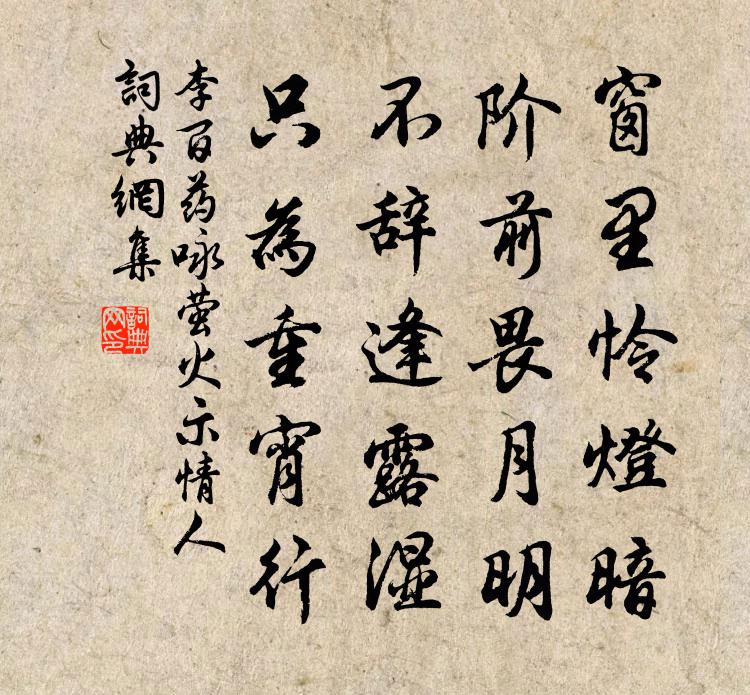 窗里怜燈暗
阶前畏月明
不辞逢露湿
只為重宵行
李百药咏萤火示情人
詞典網集
詞典網印